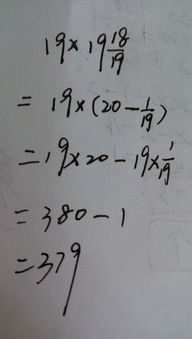 19×19 18/19
= 19×(20-1/19)
=19×20-19×1/19
=380-1
=379